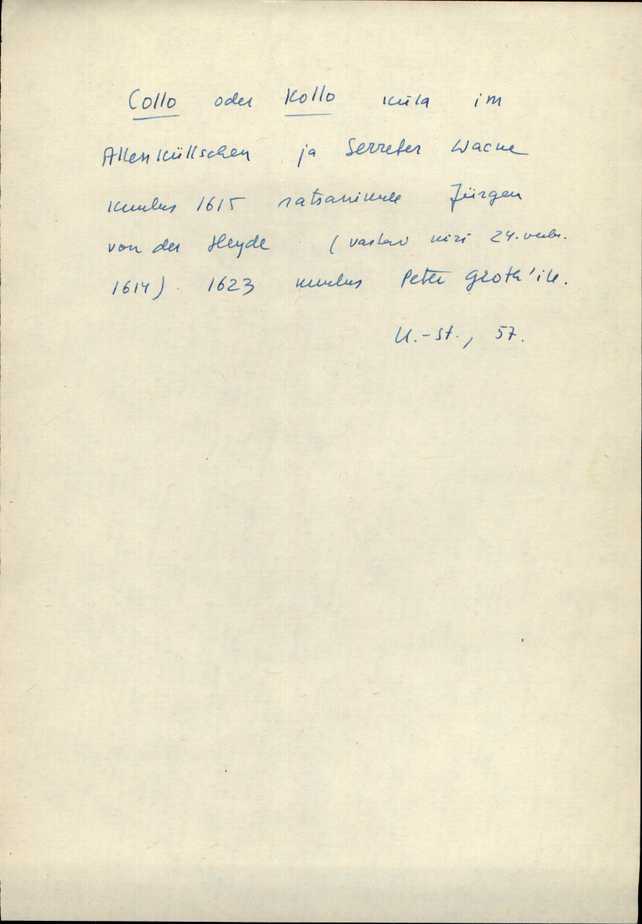 Collo oder Kollo küla im
Altenküllschen ja Serrefer Wacke
kuulus 1615 ratsanikule Jürgen
von der Heyde (vastav kiri 24. veebr.
1614). 1623 kuulus Peter Groth'ile.
U.-St., 57.